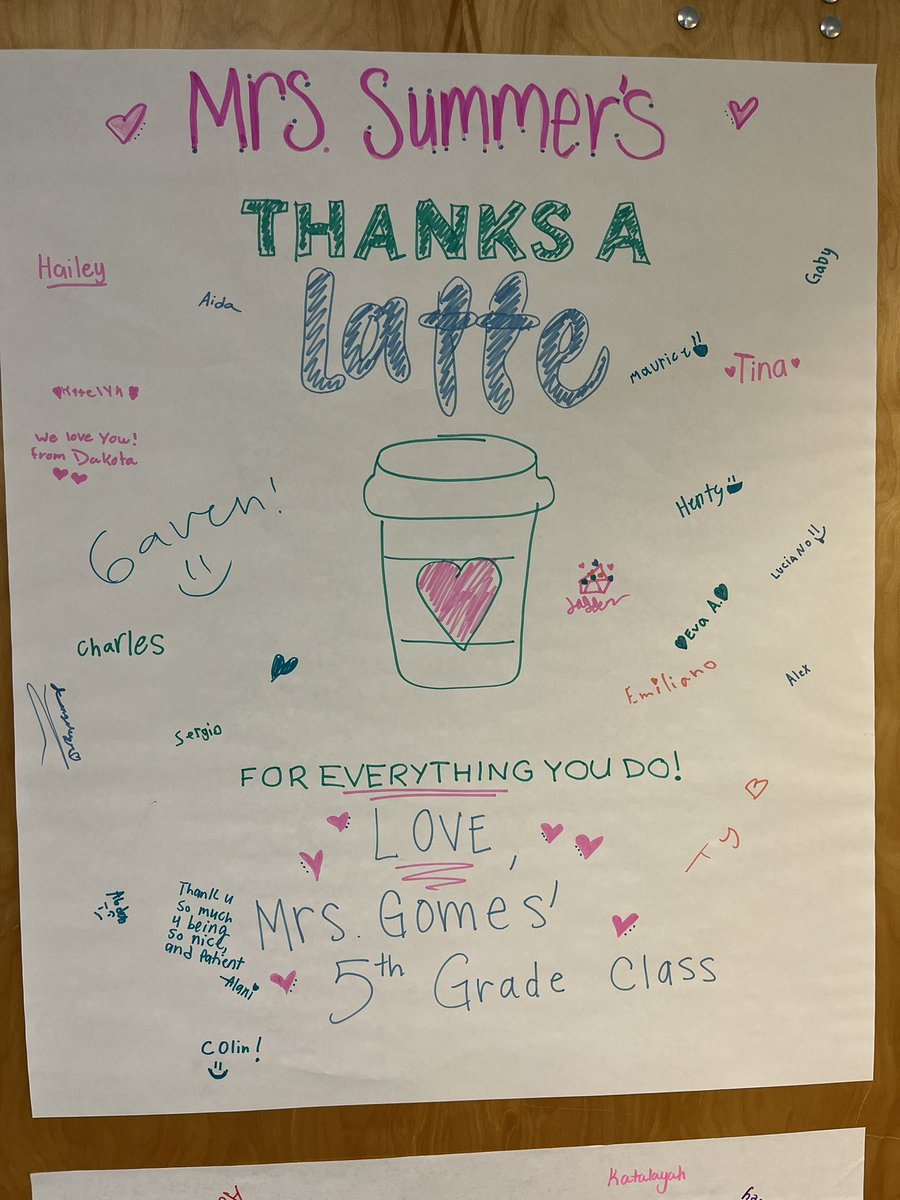 Mrs. Summer's
THANKS A
latte
Hailey
Aida
Gaby
Maurice
Tina
We love You!
from Dakota
Gaven!
Henty
LUCIANO!!
Jayden
Eva A.
Charles
Emiliano
Alex
Sergio
FOR EVERYTHING YOU DO!
LOVE,
TY
Mrs. Gomes'
5th Grade Class
Thank u
so much
4 being
so nice,
and Patient
-Alani
Colin!
Katalayah